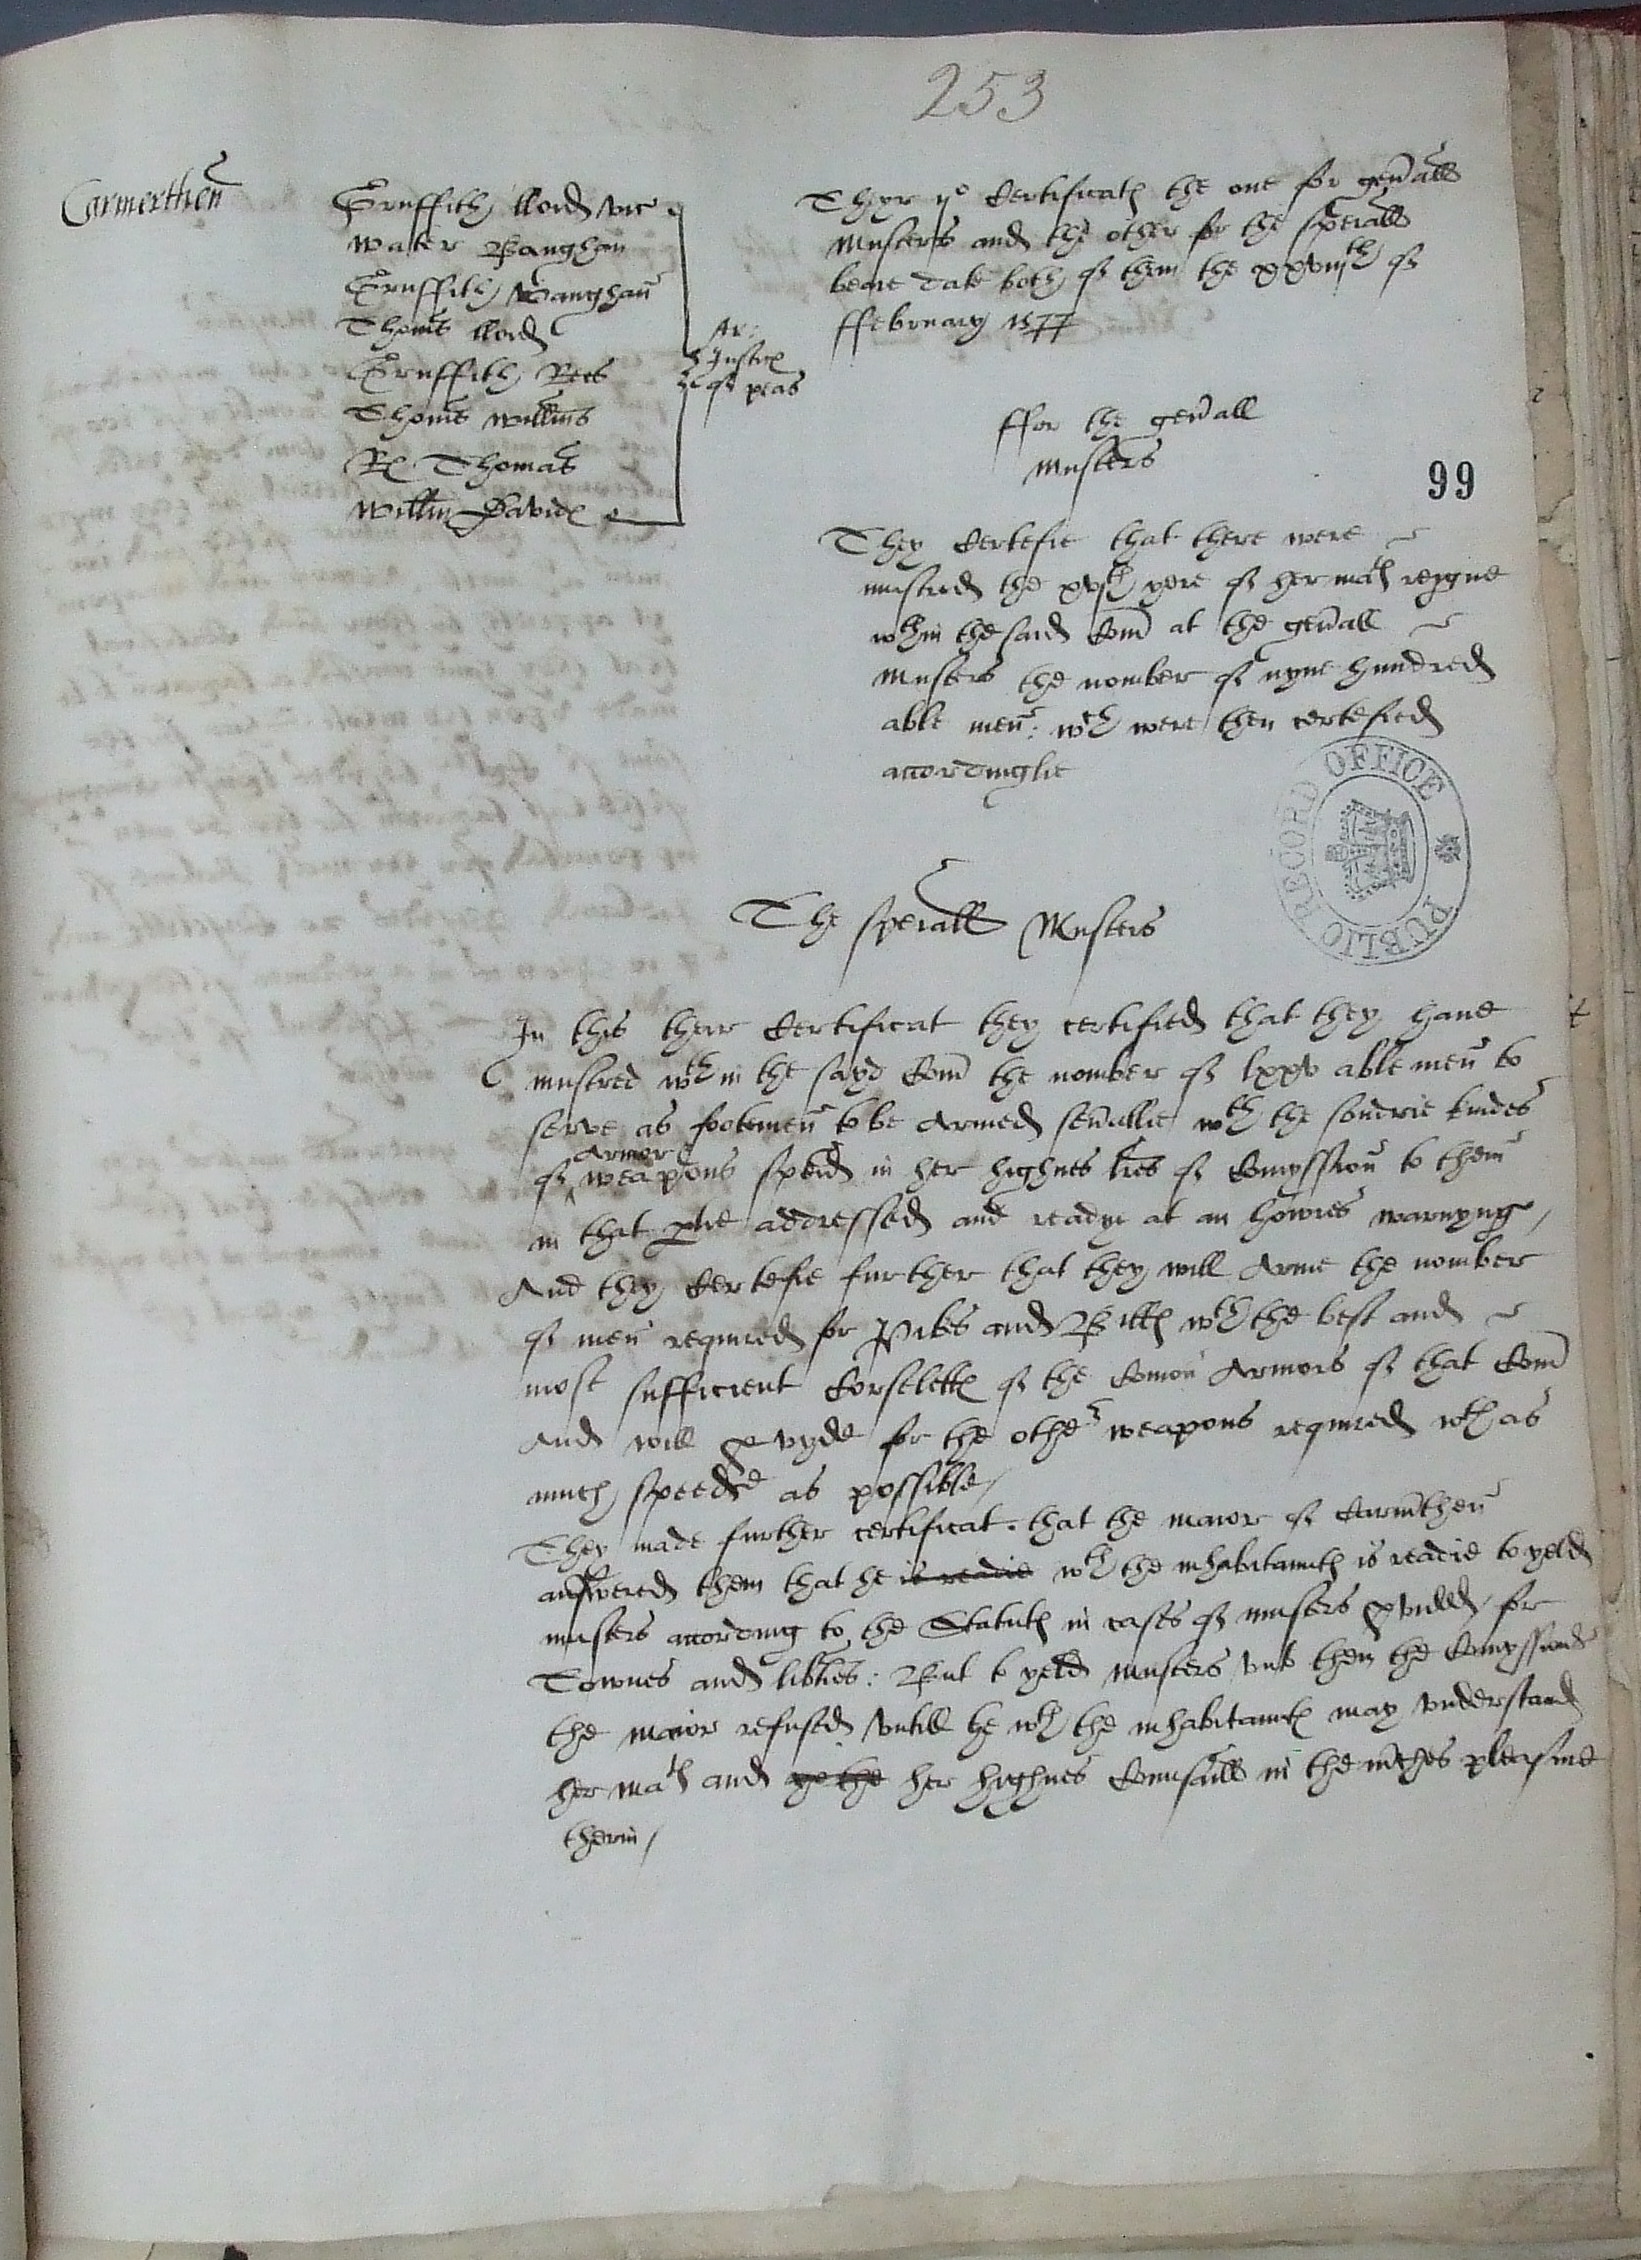 253
Carmerthen
Gruffith lloid vic
Water Vaughan
Gruffith Vaughan
Thom͞s lloid
Gruffith Rees
Thom͞s Will͞ms
R Thomas
Will͞m David
Ar:
Justic
of peas
Thyr ijo Certificath the one for gen͞all
Musters and the other for the speciall
beare date both of them the xxviijth of
ffebruary 1577
ffor the gen͞all
Musters
99
They Certefie that there were
mustred the xvth yere of her matꝭ reigne
wthin the said Com͞ at the gen͞all
Musters the nomber of nyne hundred
able men: wch were then certefied
accordinglie
PUBLIC RECORD OFFICE
The speciall Musters
In this their Certificat they certified that they haue
mustred wthin the sayd Com͞ the nomber of lxxv able men to
serve as footemen to be Armed seu͞allie wth the sondrie kindes
Armor
of weapons speci͞d in her highnes l͞res of Comyssion to them
in that p̱tie addressed and readye at an howres warnyng /
And they Certefie further that they will Arme the nomber
of men required for Pikes and Billꝭ wth the best and
most sufficient Corselettꝭ of the Comon Armors of that Com͞
And will p̱vyde for the other weapons required wth as
much speede as possible /
They made further certificat. that the maior of Carm͞then
answered them that he is readie wth the inhabitauntꝭ is readie to yeld
musters according to the Statutꝭ in cases of musters p̱vided for
Townes and lib͞ties: But to yeld musters vnto them the Comyssion͞s
the maior refused vntill he wth the inhabitauntꝭ may vnderstand
her matꝭ and her highnes Counsaill in the m͞ches pleasure
therin /